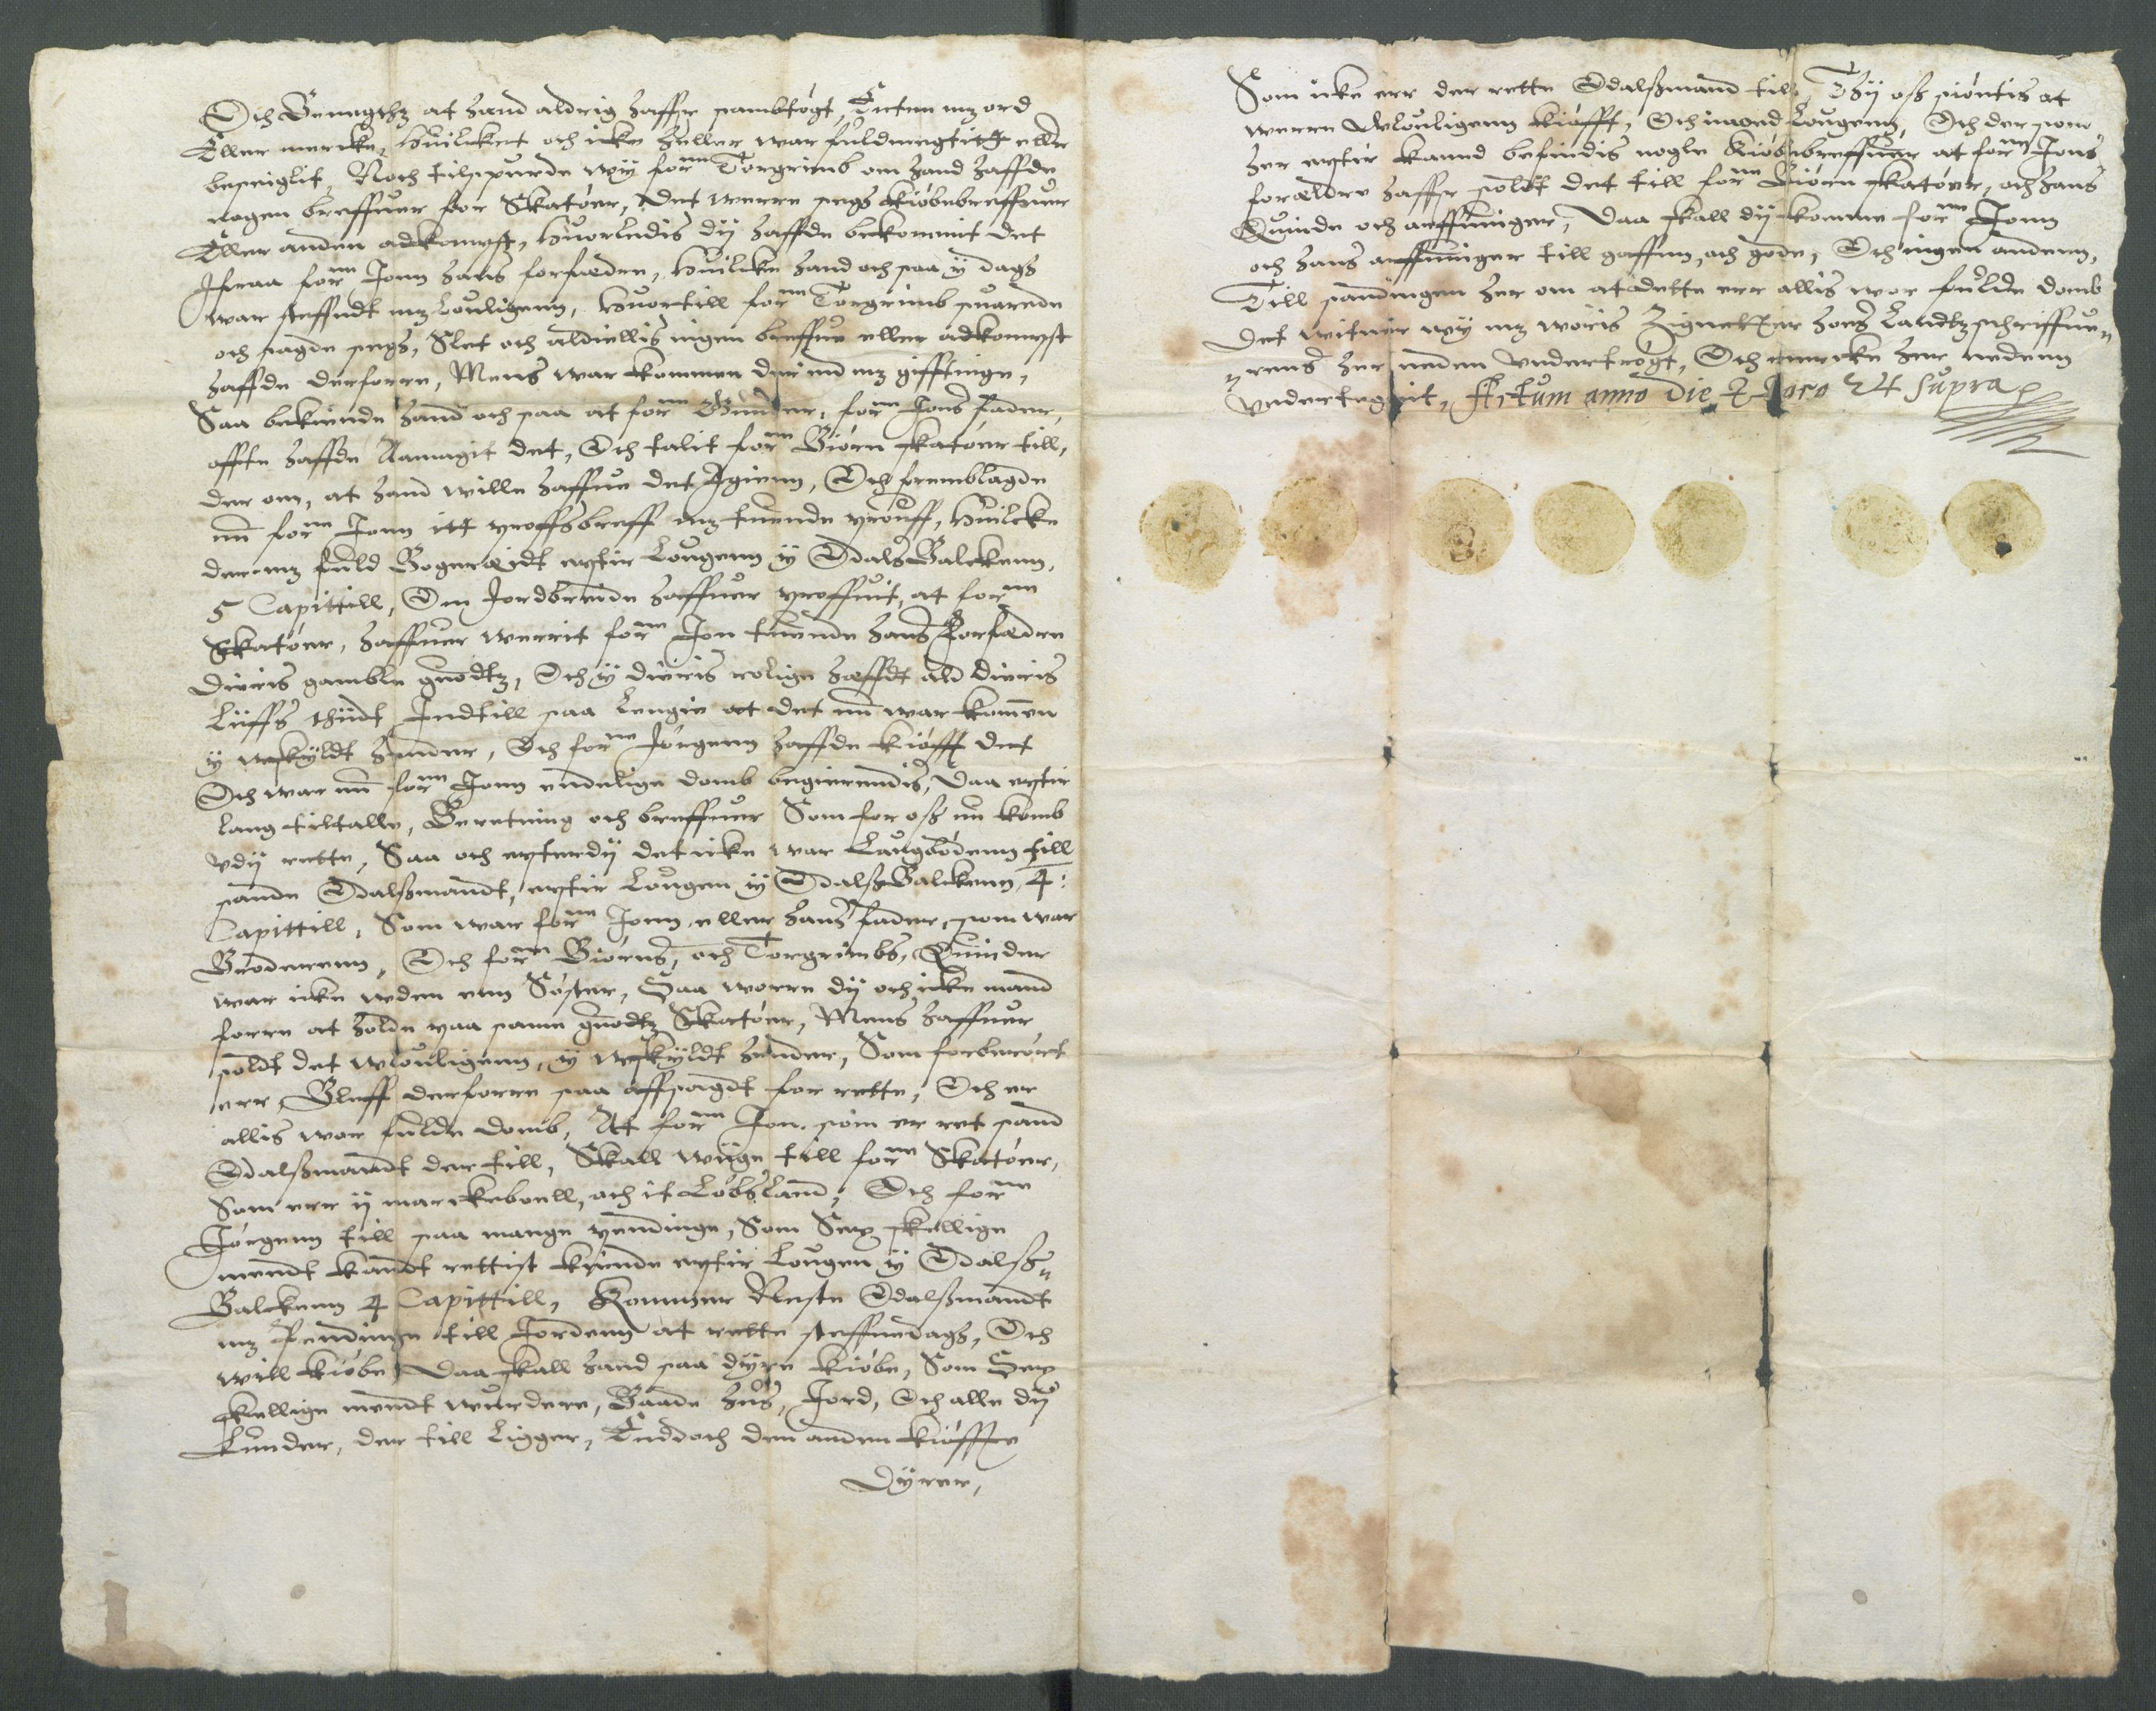 Och Benegthz at hand aldrig haffr sambtögt, Enten mz ord
Eller mercke, Huilcket och icke heller war fuldmegtigt eller
beseiglit, Noch tilspurde wy forne Torgrimb om hand haffde
nogen breffuer for Skatöer, det werre segs kiöbebreffuer
Eller anden adkomst, Huorledis dy haffde bekommit det
Ifraa forne Jonn hans forfædre, Huilcke hand och saa y dags
war steffndt mz Louligenn, Huortill forne Torgrimb suarede
och sagde segs, Slet och aldiellis ingen breffue eller adkomst
haffde derforre, Mens war kommen der ind mz gifftinge,
Saa bekiende hand och saa at forne Gunder, forne Jons fader,
offte haffde Aamagit det, Och talit forne Biörn skatöer till,
der om, at hand wille haffue det Igienn, Och fremblagde
nu forne Jonn itt proffsbreff mz tuende prouff, Huilcke
der mz fuld Bogereidt efftir Lougenn y Odals Balckenn,
5 Capittill, Om Jordbreide haffuer proffuit, at forne
Skatöer, haffuer werrit forne Jon tuende hans Forfædre
dieris gamble guodtz, Och y dieris rolige haffdt ald dieris
Lüffs thiidt Indtill saa Lengie at det nu war kommen
y wskyldt hender, Och forne Jörgenn haffde kiöfft det
Och war nu forne Jonn endelige domb begierendis, Daa efftir
lang tiltalle, Beretning och breffuer Som for oss nu komb
vdy rette, Saa och efterdy det icke war Laugbödenn till
sande Odalssmandt, efftir Lougen y Odalss Balckenn 4:
Capittill, Som war forne Jonn eller hans fader, som war
Broderenn, Och forne Biörns, och Torgrimbs, Quinder
war icke wden enn Söster, Saa worre dy och icke mand
forre at holde paa samme guodtz Skatöer, Mens haffuer
soldt det wlouligenn, y wskyldt hender, Som forberört
err, Bleff derforre saa affsagdt for rette, Och er
allis wor fulde domb, At forne Jon. som er ret sand
Odalssmandt der till, Skall wiige till forne Skatöer,
Som err ij marckeboell, och it Löbsland, Och forne
Jörgenn till saa mange pendinge, Som Sex skellige
mendt kandt rettist kiende efftir Lougen y Odalss-
Balckenn 4 Capittill, Kommer Neste Odalssmandt
mz Pendinge till Jordenn at rette steffnedags, Och
will kiöbe, Daa skall hand saa dyre kiöbe, Som Sex
skellige mendt wurdere, Baade huss, Jord, Och alle dy
Lunder, der till ligger, Enddoch den anden kiöffte
dyrer,
Som icke err der rette Odalssmand til, Thy oss siöntis at
werre Wlouligenn kiöfft, Och imoed Lougenn, Och der som
her efftir kannd befindis nogle Kiöbebreffuer at forne Jons
forældre haffr soldt det till forne Biörn skatöer, och hans
Quinde och arffuinger, Daa skall dy komme forne Jonn
och hans arffuinger till gaffnn, och gode, Och ingen andenn,
Till sandingen her om at dette err allis wor fulde domb
det witner wy mz woris Zigneter hoes Landtzschriffue-
rens her neden vndertrögt, Och mercke her nedenn
vndertegnit, Actum anno die & loco Vt supra